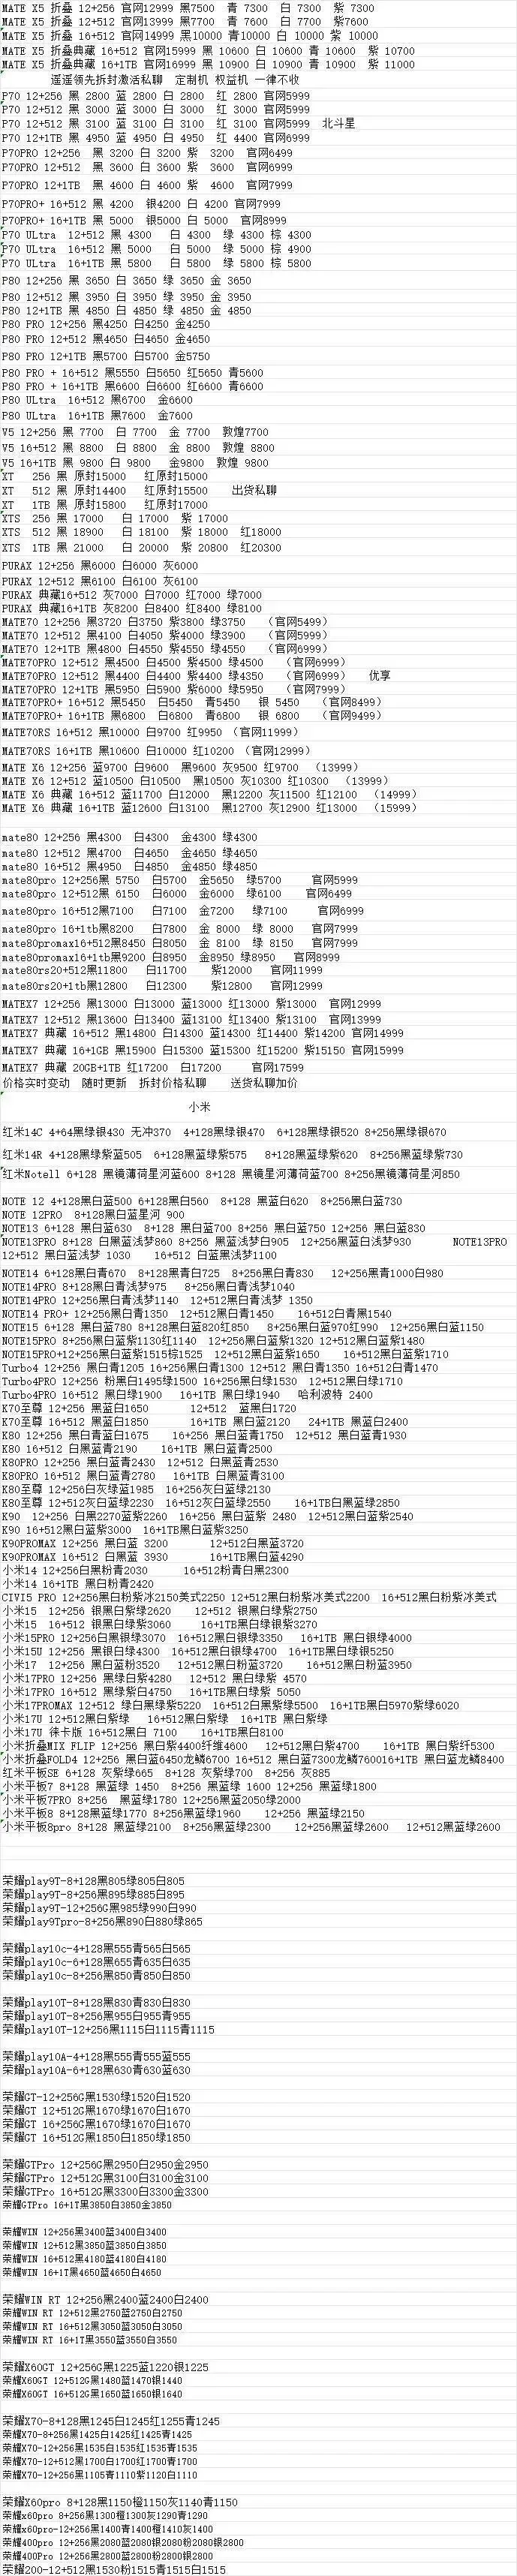 MATE X5 折叠 12+256 官网12999 黑7500 青 7300 白 7300 紫 7300
MATE X5 折叠 12+512 官网13999 黑7700 青 7600 白 7700 紫7600
MATE X5 折叠 16+512 官网14999 黑10000 青10000 白 10000 紫 10000
MATE X5 折叠典藏 16+512 官网15999 黑 10600 白 10600 青 10600 紫 10700
MATE X5 折叠典藏 16+1TB 官网16999 黑 10900 白 10900 青 10900 紫 11000
遥遥领先拆封激活私聊 定制机 权益机 一律不收
P70 12+256 黑 2800 蓝 2800 白 2800 红 2800 官网5999
P70 12+512 黑 3000 蓝 3000 白 3000 红 3000 官网5999
P70 12+512 黑 3100 蓝 3100 白 3100 红 3100 官网5999 北斗星
P70 12+1TB 黑 4950 蓝 4950 白 4950 红 4400 官网6999
P70PRO 12+256 黑 3200 白 3200 紫 3200 官网6499
P70PRO 12+512 黑 3600 白 3600 紫 3600 官网6999
P70PRO 12+1TB 黑 4600 白 4600 紫 4600 官网7999
P70PRO+ 16+512 黑 4200 银4200 白 4200 官网7999
P70PRO+ 16+1TB 黑 5000 银5000 白 5000 官网8999
P70 ULtra 12+512 黑 4300 白 4300 绿 4300 棕 4300
P70 ULtra 16+512 黑 5000 白 5000 绿 5000 棕 4900
P70 ULtra 16+1TB 黑 5800 白 5800 绿 5800 棕 5800
P80 12+256 黑 3650 白 3650 绿 3650 金 3650
P80 12+512 黑 3950 白 3950 绿 3950 金 3950
P80 12+1TB 黑 4850 白 4850 绿 4850 金 4850
P80 PRO 12+256 黑4250 白4250 金4250
P80 PRO 12+512 黑4650 白4650 金4650
P80 PRO 12+1TB 黑5700 白5700 金5750
P80 PRO + 16+512 黑5550 白5650 红5650 青5600
P80 PRO + 16+1TB 黑6600 白6600 红6600 青6600
P80 ULtra 16+512 黑6700 金6600
P80 ULtra 16+1TB 黑7600 金7600
V5 12+256 黑 7700 白 7700 金 7700 敦煌7700
V5 16+512 黑 8800 白 8800 金 8800 敦煌 8800
V5 16+1TB 黑 9800 白 9800 金9800 敦煌 9800
XT 256 黑 原封15000 红原封15000
XT 512 黑 原封14400 红原封15500 出货私聊
XT 1TB 黑 原封15800 红原封17000
XTS 256 黑 17000 白 17000 紫 17000
XTS 512 黑 18900 白 18100 紫 18000 红18000
XTS 1TB 黑 21000 白 20000 紫 20800 红20300
PURAX 12+256 黑6000 白6000 灰6000
PURAX 12+512 黑6100 白6100 灰6100
PURAX 典藏16+512 灰7000 白7000 红7000 绿7000
PURAX 典藏16+1TB 灰8200 白8400 红8400 绿8100
MATE70 12+256 黑3720 白3750 紫3800 绿3750 （官网5499）
MATE70 12+512 黑4100 白4050 紫4000 绿3900 （官网5999）
MATE70 12+1TB 黑4800 白4550 紫4550 绿4550 （官网6999）
MATE70PRO 12+512 黑4500 白4500 紫4500 绿4500 （官网6999）
MATE70PRO 12+512 黑4400 白4400 紫4400 绿4350 （官网6999） 优享
MATE70PRO 12+1TB 黑5950 白5900 紫6000 绿5950 （官网7999）
MATE70PRO+ 16+512 黑5450 白5450 青5450 银 5450 （官网8499）
MATE70PRO+ 16+1TB 黑6800 白6800 青6800 银 6800 （官网9499）
MATE70RS 16+512 黑10000 白9700 红9950 （官网11999）
MATE70RS 16+1TB 黑10600 白10000 红10200 （官网12999）
MATE X6 12+256 蓝9700 白9600 黑9600 灰9500 红9700 （13999）
MATE X6 12+512 蓝10500 白10500 黑10500 灰10300 红10300 （13999）
MATE X6 典藏 16+512 蓝11700 白12000 黑12200 灰11500 红12100 （14999）
MATE X6 典藏 16+1TB 蓝12600 白13100 黑12700 灰12900 红13000 （15999）
mate80 12+256 黑4300 白4300 金4300 绿4300
mate80 12+512 黑4700 白4650 金4650 绿4650
mate80 16+512 黑4950 白4850 金4850 绿4850
mate80pro 12+256黑 5750 白5700 金5650 绿5700 官网5999
mate80pro 12+512黑 6150 白6000 金6000 绿6100 官网6499
mate80pro 16+512黑7100 白7100 金7200 绿7100 官网6999
mate80pro 16+1tb黑8200 白7800 金 8000 绿 8000 官网7999
mate80promax16+512黑8450 白8050 金 8100 绿 8150 官网7999
mate80promax16+1tb黑9200 白8950 金8950 绿8950 官网8999
mate80rs20+512黑11800 白11700 紫12000 官网11999
mate80rs20+1tb黑12800 白12300 紫12800 官网12999
MATEX7 12+256 黑13000 白13000 蓝13000 红13000 紫13000 官网12999
MATEX7 12+512 黑13600 白13400 蓝13100 红13400 紫13100 官网13999
MATEX7 典藏 16+512 黑14800 白14300 蓝14300 红14400 紫14200 官网14999
MATEX7 典藏 16+1GB 黑15900 白15300 蓝15300 红15200 紫15150 官网15999
MATEX7 典藏 20GB+1TB 红17200 白17200 官网17599
价格实时变动 随时更新 拆封价格私聊 送货私聊加价
小米
红米14C 4+64黑绿银430 无冲370 4+128黑绿银470 6+128黑绿银520 8+256黑绿银670
红米14R 4+128黑绿紫蓝505 6+128黑蓝绿紫575 8+128黑蓝绿紫620 8+256黑蓝绿紫730
红米Note11 6+128 黑镜薄荷星河蓝600 8+128 黑镜星河薄荷蓝700 8+256黑镜薄荷星河850
NOTE 12 4+128黑白蓝500 6+128黑白560 8+128 黑蓝白620 8+256黑白蓝730
NOTE 12PRO 8+128黑白蓝星河 900
NOTE13 6+128 黑白蓝630 8+128 黑白蓝700 8+256 黑白蓝750 12+256 黑白蓝830
NOTE13PRO 8+128 白黑蓝浅梦860 8+256 黑蓝浅梦白905 12+256黑蓝白浅梦930 NOTE13PRO
12+512 黑白蓝浅梦 1030 16+512 白蓝黑浅梦1100
NOTE14 6+128黑白青670 8+128黑青白725 8+256黑白青830 12+256黑青1000白980
NOTE14PRO 8+128黑白青浅梦975 8+256黑青白浅梦1040
NOTE14PRO 12+256黑白青浅梦1140 12+512黑白青浅梦 1350
NOTE14 PRO+ 12+256黑白青1350 12+512黑白青1450 16+512白青黑1540
NOTE15 6+128 黑白蓝780 8+128黑白蓝820红850 8+256黑白蓝970红990 12+256黑白蓝1150
NOTE15PRO 8+256黑白蓝紫1130红1140 12+256黑白蓝紫1320 12+512黑白蓝紫1480
NOTE15PRO+12+256黑白蓝紫1515棕1525 12+512黑白蓝紫1650 16+512黑白蓝紫1710
Turbo4 12+256 黑白青1205 16+256黑白青1300 12+512 黑白青1350 16+512白青1470
Turbo4PRO 12+256 粉黑白1495绿1500 16+256黑白绿1530 12+512黑白绿1710
Turbo4PRO 16+512 黑白绿1900 16+1TB 黑白绿1940 哈利波特 2400
K70至尊 12+256 黑蓝白1650 12+512 蓝黑白1720
K70至尊 16+512 黑蓝白1850 16+1TB 黑白蓝2120 24+1TB 黑蓝白2400
K80 12+256 黑白青蓝白1675 16+256 黑白蓝青1750 12+512 黑白蓝青1930
K80 16+512 白黑蓝青2190 16+1TB 黑白蓝青2500
K80PRO 12+256 黑白蓝青2430 12+512 白黑蓝青2530
K80PRO 16+512 黑白蓝青2780 16+1TB 白黑蓝青3100
K80至尊 12+256白灰绿蓝1985 16+256灰白蓝绿2130
K80至尊 12+512灰白蓝绿2230 16+512白灰蓝绿2550 16+1TB白黑蓝绿2850
K90 12+256 白黑2270蓝紫2260 16+256 黑白蓝紫 2480 12+512黑白蓝紫2540
K90 16+512黑白蓝紫3000 16+1TB黑白蓝紫3250
K90PROMAX 12+256 黑白蓝 3200 12+512白黑蓝3720
K90PROMAX 16+512 白黑蓝 3930 16+1TB黑白蓝4290
小米14 12+256黑白粉青2030 16+512粉青白黑2300
小米14 16+1TB 黑白粉青2420
CIVI5 PRO 12+256黑白粉紫冰2150美式2250 12+512黑白粉紫冰美式2200 16+512黑白粉紫冰美式
小米15 12+256 银黑白紫绿2620 12+512 银黑白绿紫2750
小米15 16+512 银黑白绿紫3060 16+1TB黑白绿银紫3270
小米15PRO 12+256白黑银绿3070 16+512黑白银绿3350 16+1TB 黑白银绿4000
小米15U 12+256 黑银白绿4300 16+512黑白绿银4700 16+1TB黑白绿银5250
小米17 12+256 黑白蓝粉3520 12+512黑白蓝粉3720 16+512黑白蓝粉3950
小米17PRO 12+256 黑绿白紫4280 12+512 黑白绿紫 4570
小米17PRO 16+512 黑绿紫白4750 16+1TB黑白绿紫 5050
小米17PROMAX 12+512 绿白黑绿紫5220 16+512白黑紫绿5500 16+1TB黑白5970紫绿6020
小米17U 12+512黑白紫绿 16+512黑白紫绿 16+1TB 黑白紫绿
小米17U 徕卡版 16+512黑白 7100 16+1TB黑白8100
小米折叠MIX FLIP 12+256 黑白紫4400纤维4600 12+512黑白紫4700 16+1TB 黑白紫纤5300
小米折叠FOLD4 12+256 黑白蓝6450龙鳞6700 16+512 黑白蓝7300龙鳞760016+1TB 黑白蓝龙鳞8400
红米平板SE 6+128 灰紫绿665 8+128 灰紫绿700 8+256 灰885
小米平板7 8+128 黑蓝绿 1450 8+256 黑蓝绿 1600 12+256 黑蓝绿1800
小米平板7PRO 8+256 黑蓝绿1780 12+256黑蓝2050绿2000
小米平板8 8+128黑蓝绿1770 8+256黑蓝绿1960 12+256 黑蓝绿2150
小米平板8pro 8+128 黑蓝绿2100 8+256黑蓝绿2300 12+256黑蓝绿2600 12+512黑蓝绿2600
荣耀play9T-8+128黑805绿805白805
荣耀play9T-8+256黑895绿885白895
荣耀play9T-12+256G黑985绿990白990
荣耀play9Tpro-8+256黑890白880绿865
荣耀play10c-4+128黑555青565白565
荣耀play10c-6+128黑655青635白635
荣耀play10c-8+256黑850青850白850
荣耀play10T-8+128黑830青830白830
荣耀play10T-8+256黑955白955青955
荣耀play10T-12+256黑1115白1115青1115
荣耀play10A-4+128黑555青555蓝555
荣耀play10A-6+128黑630青630蓝630
荣耀GT-12+256G黑1530绿1520白1520
荣耀GT 12+512G黑1670绿1670白1670
荣耀GT 16+256G黑1670绿1670白1670
荣耀GT 16+512G黑1850白1850绿1850
荣耀GTPro 12+256G黑2950白2950金2950
荣耀GTPro 12+512G黑3100白3100金3100
荣耀GTPro 16+512G黑3300白3300金3300
荣耀GTPro 16+1T黑3850白3850金3850
荣耀WIN 12+256黑3400蓝3400白3400
荣耀WIN 12+512黑3850蓝3850白3850
荣耀WIN 16+512黑4180蓝4180白4180
荣耀WIN 16+1T黑4650蓝4650白4650
荣耀WIN RT 12+256黑2400蓝2400白2400
荣耀WIN RT 12+512黑2750蓝2750白2750
荣耀WIN RT 16+512黑3050蓝3050白3050
荣耀WIN RT 16+1T黑3550蓝3550白3550
荣耀X60GT 12+256G黑1225蓝1220银1225
荣耀X60GT 12+512G黑1480蓝1470银1440
荣耀X60GT 16+512G黑1650蓝1650银1640
荣耀X70-8+128黑1245白1245红1255青1245
荣耀X70-8+256黑1425白1425红1425青1425
荣耀X70-12+256黑1535白1535红1535青1535
荣耀X70-12+512黑1700白1700红1700青1700
荣耀X70-12+256黑1105青1110紫1120白1110
荣耀X60pro 8+128黑1150橙1150灰1140青1150
荣耀x60pro 8+256黑1300橙1300灰1290青1290
荣耀x60pro-12+256黑1400青1400橙1410灰1400
荣耀400pro 12+256黑2080蓝2080银2080粉2080银2800
荣耀400Pro 12+256黑2800蓝2800粉2800银2800
荣耀200-12+512黑1530粉1515青1515白1515